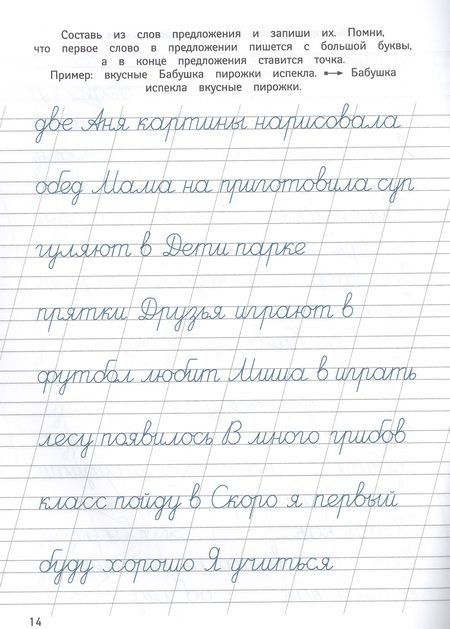 Составь из слов предложения и запиши их. Помни,
что первое слово в предложении пишется с большой буквы,
а в конце предложения ставится точка.
Пример: вкусные Бабушка пирожки испекла. ⟷ Бабушка
испекла вкусные пирожки.
две Аня картины нарисовала
обед Мама на приготовила суп
гуляют в Дети парке
прятки Друзья играют в
футбол любит Миша в играть
лесу появилось В много грибов
класс пойду в Скоро я первый
буду хорошо Я учиться
14